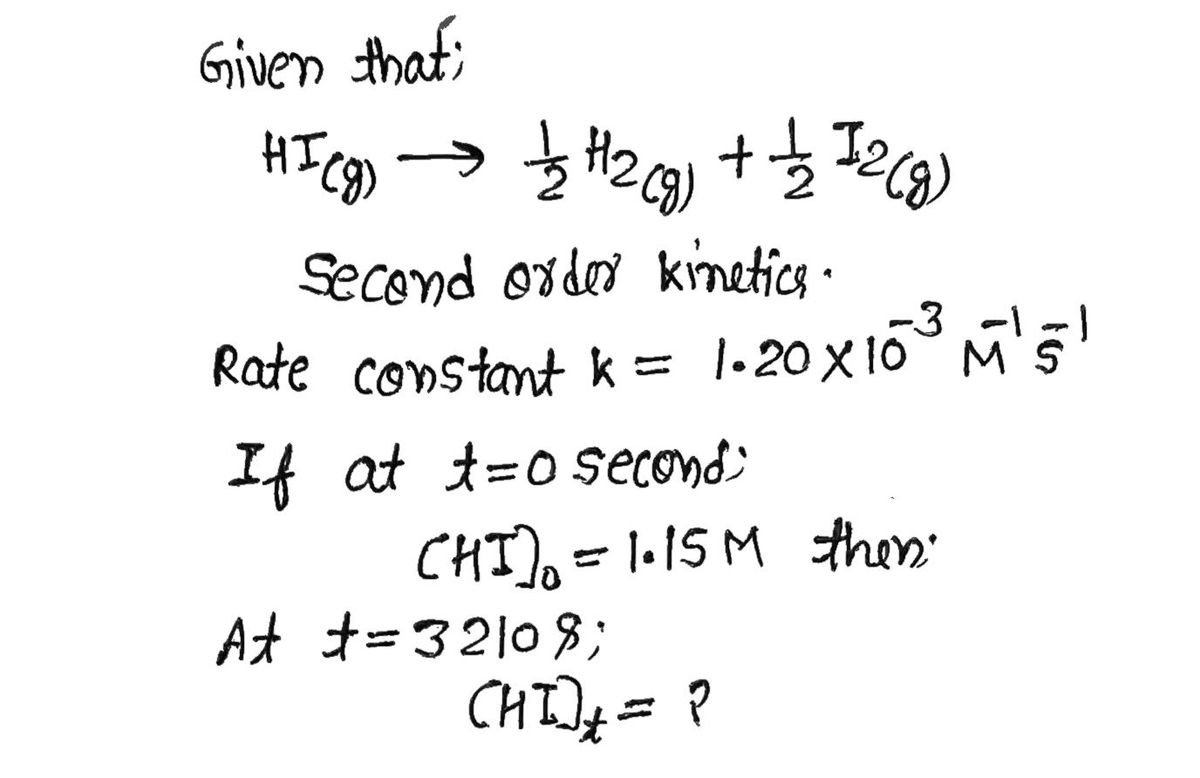 Given that;
HI(g) → 1/2 H2(g) + 1/2 I2(g)
Second order kinetics.
Rate constant k = 1.20 X 10⁻³ M⁻¹ S⁻¹
If at t=0 second;
[HI]₀ = 1.15 M then;
At t=3210 s;
[HI]t = ?